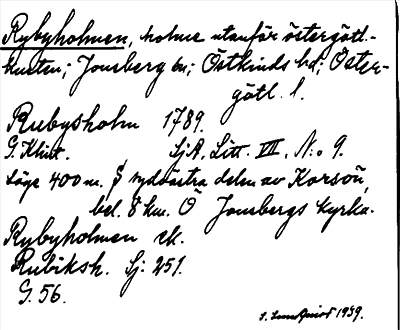 Rybyholmen, holme utanför östergötl.-
kusten; Jonsberg sn; Östkinds hd; Öster-
götl. l.
Rubysholm 1789.
G. Klint. SjA, Litt. VII, N:o 9.
Läge 400 m. S sydöstra delen av Korsön,
bel. 8 km. Ö Jonsbergs kyrka.
Rybyholmen ek.
Rubiksh. Sj: 251.
G. 56.
1939.